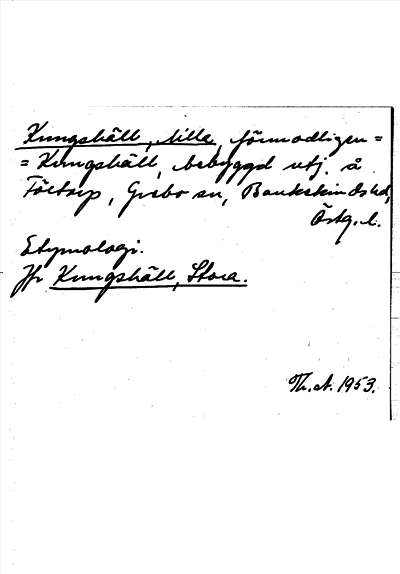 Kungshäll, lilla, förmodligen =
= Kungshäll, bebyggd utj. å
Töltorp, Grebo sn, Bankekinds hd,
Östg. l.
Etymologi.
Jfr Kungshäll, Stora.
Th. A. 1953.